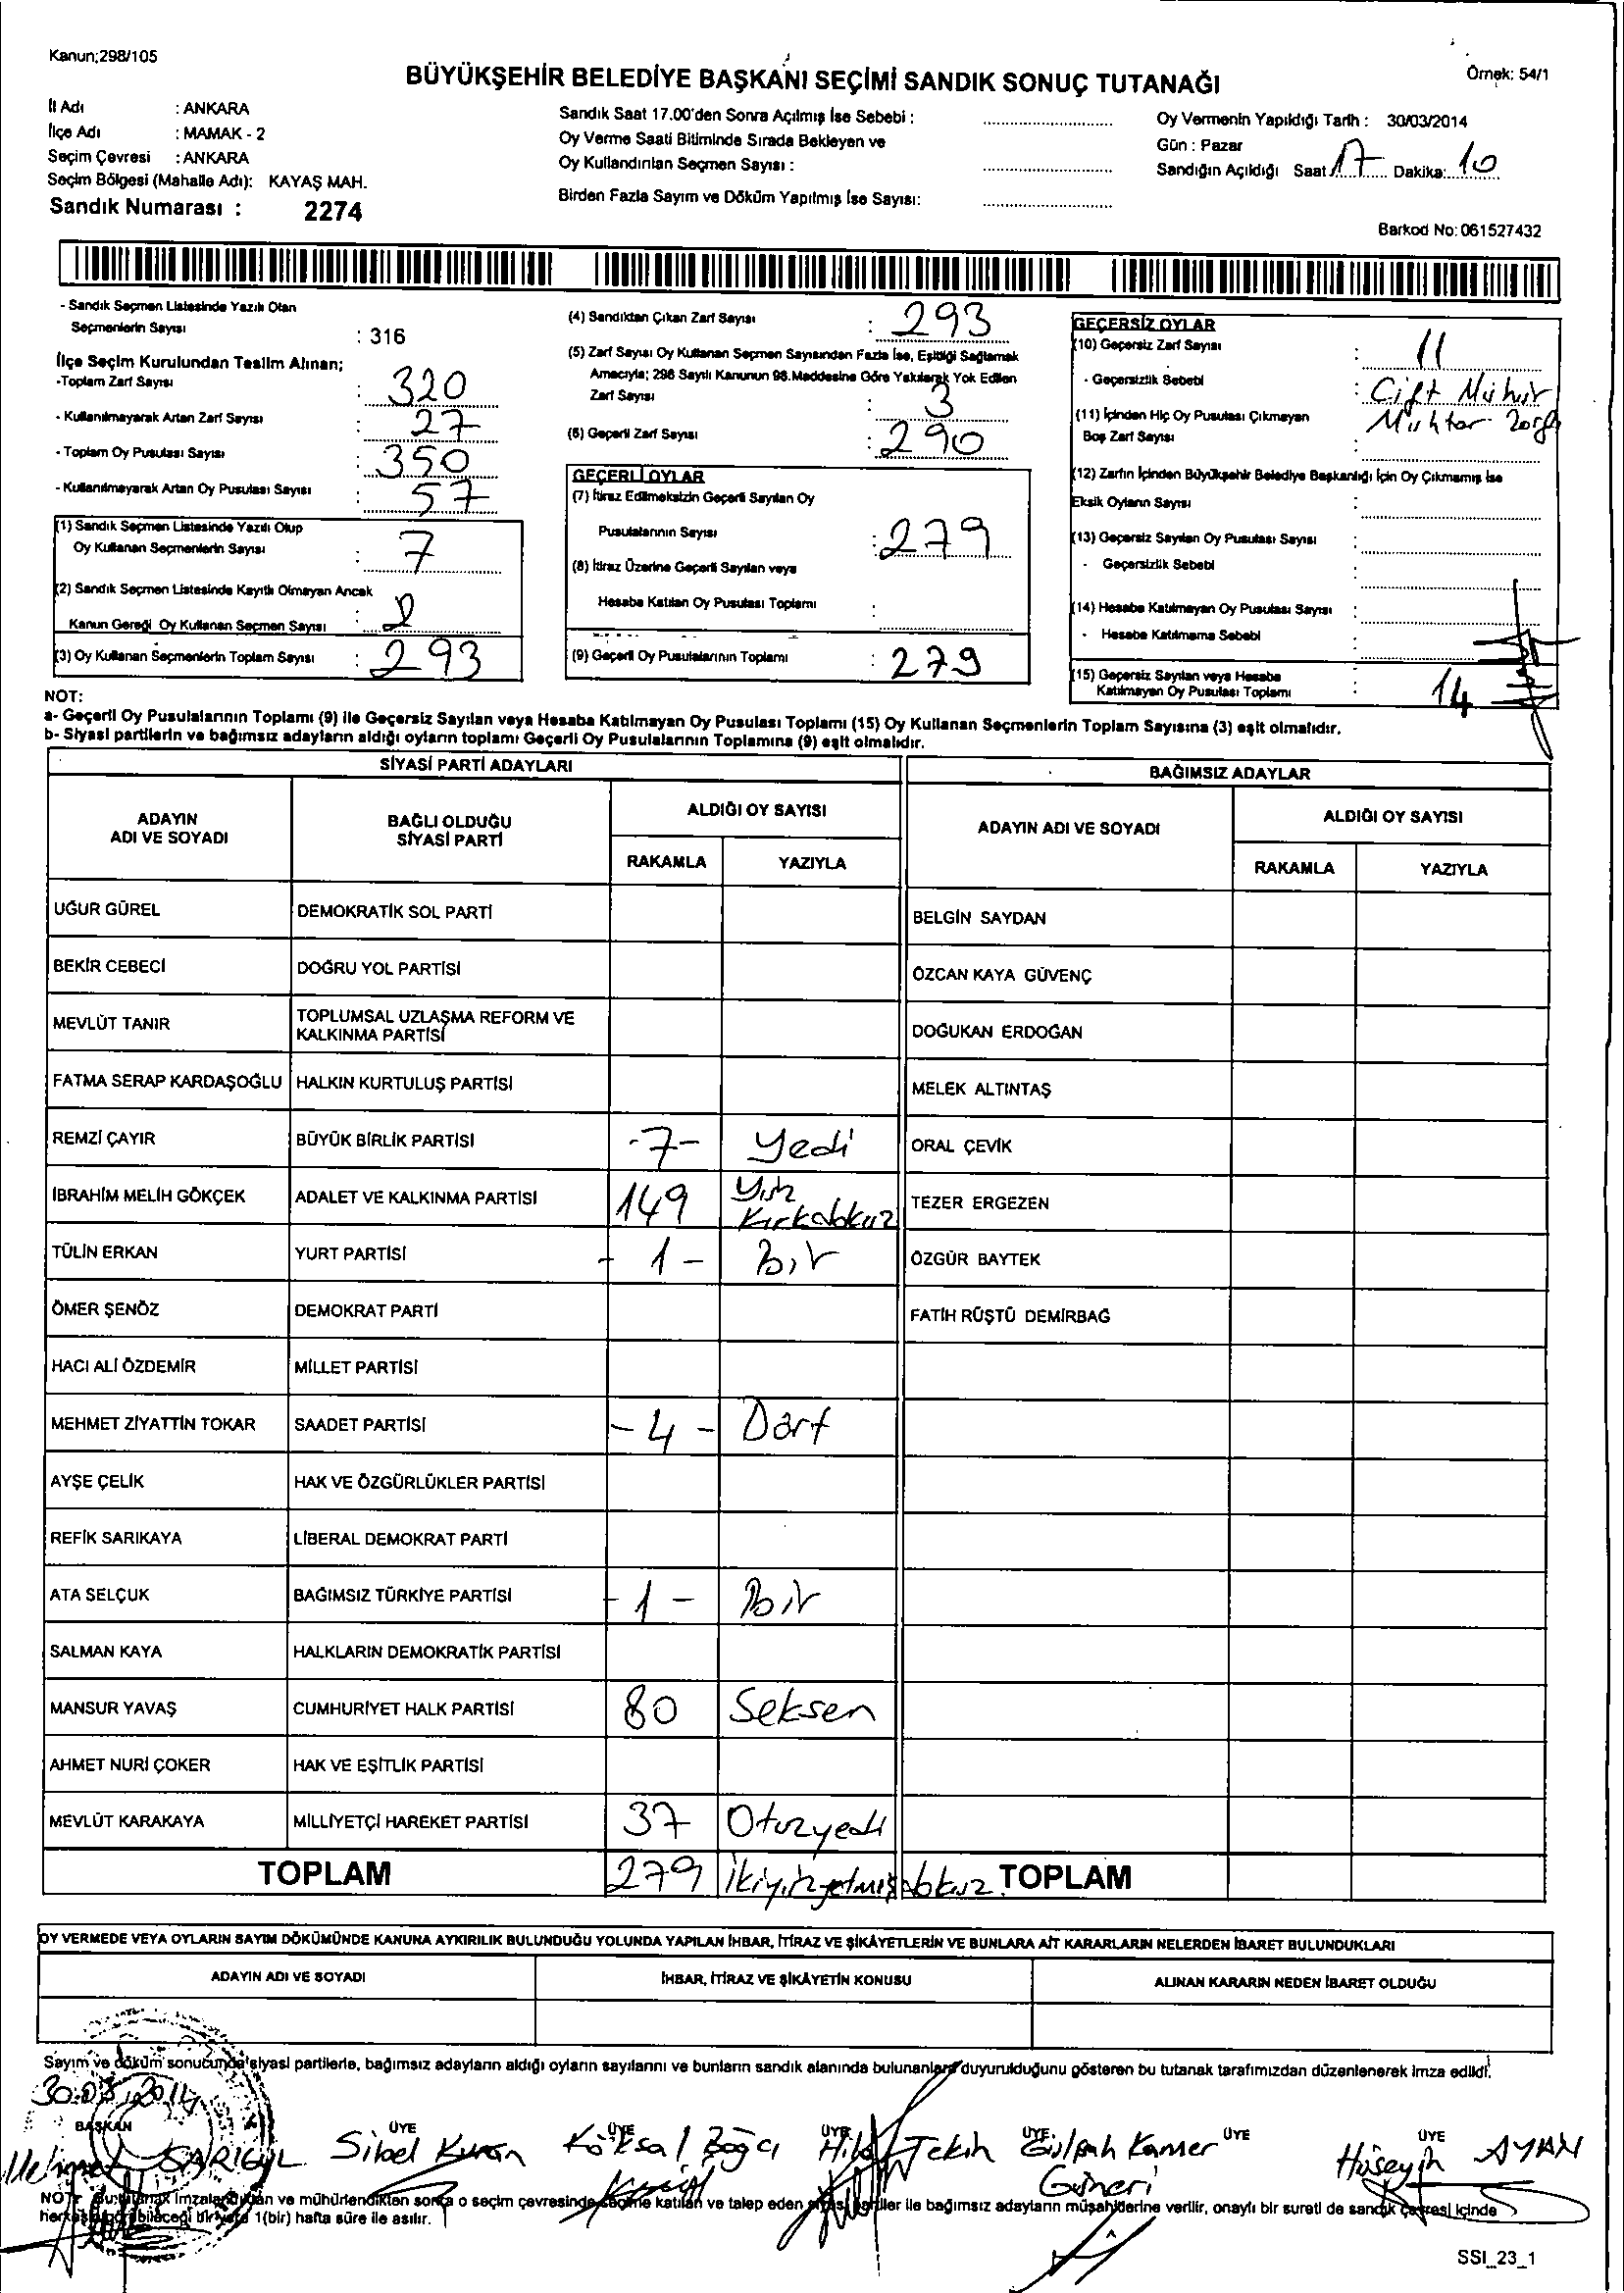 Kanun;298/105
BÜYÜKŞEHİR BELEDİYE BAŞKANI SEÇİMİ SANDIK SONUÇ TUTANAĞI
Örnek: 54/1
İl Adı : ANKARA
İlçe Adı : MAMAK - 2
Seçim Çevresi : ANKARA
Seçim Bölgesi (Mahalle Adı): KAYAŞ MAH.
Sandık Numarası : 2274
Sandık Saat 17.00'den Sonra Açılmış İse Sebebi :
Oy Verme Saati Bitiminde Sırada Bekleyen ve
Oy Kullandırılan Seçmen Sayısı :
Birden Fazla Sayım ve Döküm Yapılmış İse Sayısı:
Oy Vermenin Yapıldığı Tarih : 30/03/2014
Gün : Pazar
Sandığın Açıldığı Saat 17 Dakika: 10
Barkod No: 061527432
- Sandık Seçmen Listesinde Yazılı Olan
Seçmenlerin Sayısı : 316
İlçe Seçim Kurulundan Teslim Alınan;
-Toplam Zarf Sayısı : 320
- Kullanılmayarak Artan Zarf Sayısı : 27
- Toplam Oy Pusulası Sayısı : 350
- Kullanılmayarak Artan Oy Pusulası Sayısı : 57
(1) Sandık Seçmen Listesinde Yazılı Olup
Oy Kullanan Seçmenlerin Sayısı : 7
(2) Sandık Seçmen Listesinde Kayıtlı Olmayan Ancak
Kanun Gereği Oy Kullanan Seçmen Sayısı :
(3) Oy Kullanan Seçmenlerin Toplam Sayısı : 293
(4) Sandıktan Çıkan Zarf Sayısı : 293
(5) Zarf Sayısı Oy Kullanan Seçmen Sayısından Fazla İse, Eşitliği Sağlamak
Amacıyla; 298 Sayılı Kanunun 98.Maddesine Göre Yakılarak Yok Edilen
Zarf Sayısı : 3
(6) Geçerli Zarf Sayısı : 290
GEÇERLİ OYLAR
(7) İtiraz Edilmeksizin Geçerli Sayılan Oy
Pusulalarının Sayısı : 279
(8) İtiraz Üzerine Geçerli Sayılan veya
Hesaba Katılan Oy Pusulası Toplamı :
(9) Geçerli Oy Pusulalarının Toplamı : 279
GEÇERSİZ OYLAR
(10) Geçersiz Zarf Sayısı : 11
- Geçersizlik Sebebi : Çift Mühür
Muhtar
(11) İçinden Hiç Oy Pusulası Çıkmayan
Boş Zarf Sayısı :
(12) Zarfın İçinden Büyükşehir Belediye Başkanlığı İçin Oy Çıkmamış İse
Eksik Oyların Sayısı
(13) Geçersiz Sayılan Oy Pusulası Sayısı :
- Geçersizlik Sebebi :
(14) Hesaba Katılmayan Oy Pusulası Sayısı :
- Hesaba Katılmama Sebebi :
(15) Geçersiz Sayılan veya Hesaba
Katılmayan Oy Pusulası Toplamı : 14
NOT:
a- Geçerli Oy Pusulalarının Toplamı (9) ile Geçersiz Sayılan veya Hesaba Katılmayan Oy Pusulası Toplamı (15) Oy Kullanan Seçmenlerin Toplam Sayısına (3) eşit olmalıdır.
b- Siyasi partilerin ve bağımsız adayların aldığı oyların toplamı Geçerli Oy Pusulalarının Toplamına (9) eşit olmalıdır.
SİYASİ PARTİ ADAYLARI
BAĞIMSIZ ADAYLAR
ADAYIN ADI VE SOYADI
BAĞLI OLDUĞU SİYASİ PARTİ
ALDIĞI OY SAYISI
RAKAMLA YAZIYLA
ADAYIN ADI VE SOYADI
ALDIĞI OY SAYISI
RAKAMLA YAZIYLA
UĞUR GÜREL DEMOKRATİK SOL PARTİ BELGİN SAYDAN
BEKİR CEBECİ DOĞRU YOL PARTİSİ ÖZCAN KAYA GÜVENÇ
MEVLÜT TANIR TOPLUMSAL UZLAŞMA REFORM VE KALKINMA PARTİSİ DOĞUKAN ERDOĞAN
FATMA SERAP KARDAŞOĞLU HALKIN KURTULUŞ PARTİSİ MELEK ALTINTAŞ
REMZİ ÇAYIR BÜYÜK BİRLİK PARTİSİ -7- Yedi ORAL ÇEVİK
İBRAHİM MELİH GÖKÇEK ADALET VE KALKINMA PARTİSİ 149 Yüz Kırkdokuz TEZER ERGEZEN
TÜLİN ERKAN YURT PARTİSİ - 1 - Bir ÖZGÜR BAYTEK
ÖMER ŞENÖZ DEMOKRAT PARTİ FATİH RÜŞTÜ DEMİRBAĞ
HACI ALİ ÖZDEMİR MİLLET PARTİSİ
MEHMET ZİYATTİN TOKAR SAADET PARTİSİ - 4 - Dört
AYŞE ÇELİK HAK VE ÖZGÜRLÜKLER PARTİSİ
REFİK SARIKAYA LİBERAL DEMOKRAT PARTİ
ATA SELÇUK BAĞIMSIZ TÜRKİYE PARTİSİ - 1 - Bir
SALMAN KAYA HALKLARIN DEMOKRATİK PARTİSİ
MANSUR YAVAŞ CUMHURİYET HALK PARTİSİ 80 Seksen
AHMET NURİ ÇOKER HAK VE EŞİTLİK PARTİSİ
MEVLÜT KARAKAYA MİLLİYETÇİ HAREKET PARTİSİ 37 Otuzyedi
TOPLAM 279 İkiyüzyetmişdokuz TOPLAM
OY VERMEDE VEYA OYLARIN SAYIM DÖKÜMÜNDE KANUNA AYKIRILIK BULUNDUĞU YOLUNDA YAPILAN İHBAR, İTİRAZ VE ŞİKÂYETLERİN VE BUNLARA AİT KARARLARIN NELERDEN İBARET BULUNDUKLARI
ADAYIN ADI VE SOYADI İHBAR, İTİRAZ VE ŞİKÂYETİN KONUSU ALINAN KARARIN NEDEN İBARET OLDUĞU
Sayım ve döküm sonucunda siyasi partilerle, bağımsız adayların aldığı oyların sayılarını ve bunların sandık alanında bulunanlara duyurulduğunu gösteren bu tutanak tarafımızdan düzenlenerek imza edildi.
30.03.2014
BAŞKAN ÜYE ÜYE ÜYE ÜYE ÜYE ÜYE
Mehmet SARIGÜL Sibel Kuran Köksal Boğa Hilal Tekin Gülşah Kamer Güneri Hüseyin AYAN
NOT: Bu tutanak imzalandıktan ve mühürlendikten sonra o seçim çevresinde seçime katılan ve talep eden siyasi partiler ile bağımsız adayların müşahitlerine verilir, onaylı bir sureti de sandık çevresi içinde
herkesin görebileceği bir yere 1(bir) hafta süre ile asılır.
SSI_23_1